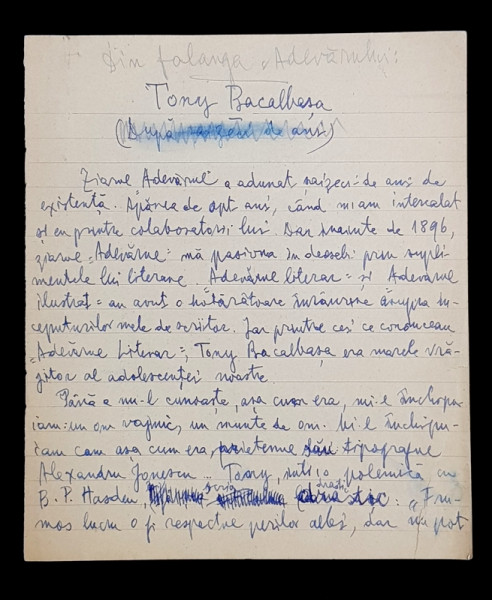 Din falanga „Adevărului":
Tony Bacalbașa
(După șaizeci de ani)
Ziarul „Adevărul" a adunat șaizeci de ani de
existență. Apărea de opt ani, când m'am intercalat
și eu printre colaboratorii lui. Dar înainte de 1896,
ziarul „Adevărul" mă pasiona în deosebi prin supli-
mentele lui literare. „Adevărul literar" și „Adevărul
ilustrat" au avut o hotărâtoare înrâurire asupra în-
ceputurilor mele de scriitor. Iar printre cei ce conduceau
„Adevărul Literar", Tony Bacalbașa era marele vră-
jitor al adolescenței noastre.
Până a nu-l cunoaște, așa cum era, mi-l închipu-
iam un om vajnic, un munte de om. Mi-l închipu-
iam cam așa cum era prietenul său tipograful
Alexandru Ionescu. Tony, într'o polemică cu
B. P. Hasdeu, scria: „Fru-
mos lucru o fi respectul perilor albi, dar nu pot